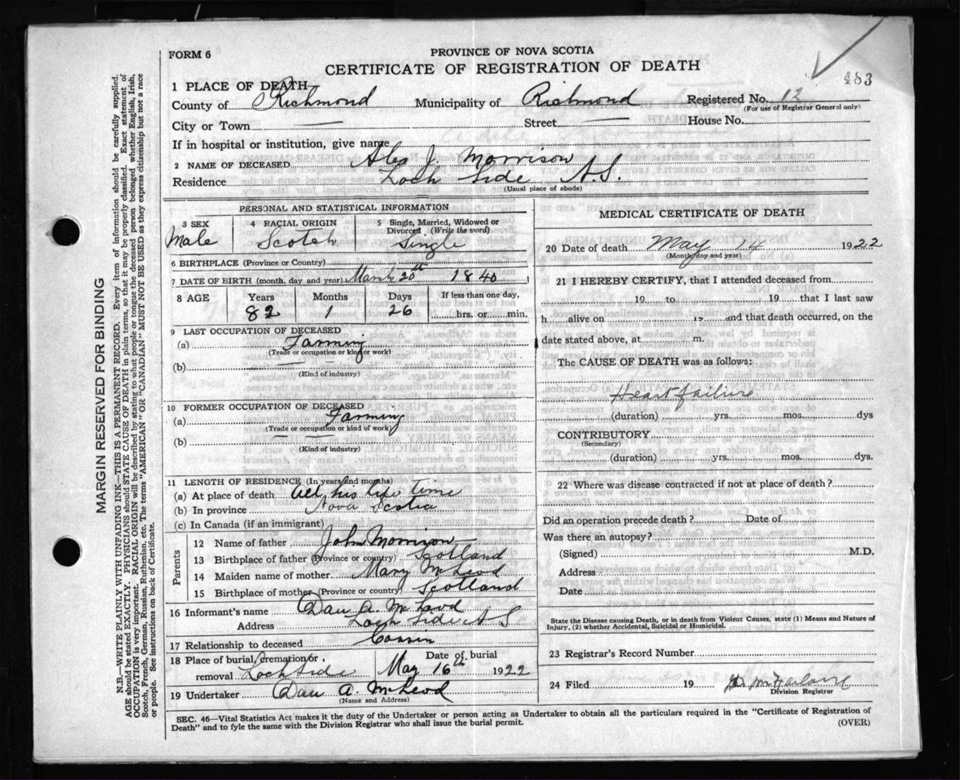 FORM 6
PROVINCE OF NOVA SCOTIA
CERTIFICATE OF REGISTRATION OF DEATH
483
1 PLACE OF DEATH
County of Richmond Municipality of Richmond Registered No. 12
(For use of Registrar General only)
City or Town Street House No.
If in hospital or institution, give name
2 NAME OF DECEASED Alex J. Morrison
Residence Loch Side
(Usual place of abode)
PERSONAL AND STATISTICAL INFORMATION
3 SEX Male
4 RACIAL ORIGIN Scotch
5 Single, Married, Widowed or Divorced (Write the word) Single
6 BIRTHPLACE (Province or Country)
7 DATE OF BIRTH (month, day and year) March 20th 1840
8 AGE Years Months Days If less than one day,
82 1 26 hrs. or min.
9 LAST OCCUPATION OF DECEASED
(a) Farming
(Trade or occupation or kind of work)
(b)
(Kind of industry)
10 FORMER OCCUPATION OF DECEASED
(a) Farming
(Trade or occupation or kind of work)
(b)
(Kind of industry)
11 LENGTH OF RESIDENCE (In years and months)
(a) At place of death All his life time
(b) In province Nova Scotia
(c) In Canada (if an immigrant)
Parents
12 Name of father John Morrison
13 Birthplace of father (Province or country) Scotland
14 Maiden name of mother Mary McLeod
15 Birthplace of mother (Province or country) Scotland
16 Informant's name Dan A. McLeod
Address Loch Side
17 Relationship to deceased Cousin
18 Place of burial, cremation or removal Loch Side Date of burial May 16th 1922
19 Undertaker Dan A. McLeod
(Name and Address)
MEDICAL CERTIFICATE OF DEATH
20 Date of death May 14 1922
(Month, day and year)
21 I HEREBY CERTIFY, that I attended deceased from
19 to 19 that I last saw
h alive on 19 and that death occurred, on the
date stated above, at m.
The CAUSE OF DEATH was as follows:
Heart failure
(duration) yrs. mos. dys
CONTRIBUTORY
(Secondary)
(duration) yrs. mos. dys.
22 Where was disease contracted if not at place of death?
Did an operation precede death? Date of
Was there an autopsy?
(Signed) M.D.
Address
Date
State the Disease causing Death, or in death from Violent Causes, state (1) Means and Nature of Injury, (2) whether Accidental, Suicidal or Homicidal.
23 Registrar's Record Number
24 Filed 19
Division Registrar
SEC. 46—Vital Statistics Act makes it the duty of the Undertaker or person acting as Undertaker to obtain all the particulars required in the "Certificate of Registration of
Death" and to fyle the same with the Division Registrar who shall issue the burial permit. (OVER)
MARGIN RESERVED FOR BINDING
N.B.—WRITE PLAINLY WITH UNFADING INK—THIS IS A PERMANENT RECORD. Every item of information should be carefully supplied.
AGE should be stated EXACTLY. PHYSICIANS should STATE CAUSE OF DEATH in plain terms, so that it may be properly classified. Exact statement of
OCCUPATION is very important. RACIAL ORIGIN will be described by stating to what people or tongue the deceased person belonged whether English, Irish,
Scotch, French, German, Russian, Ruthenian, etc. The terms "AMERICAN" OR "CANADIAN" MUST NOT BE USED as they express citizenship but not a race
or people. See instructions on back of Certificate.